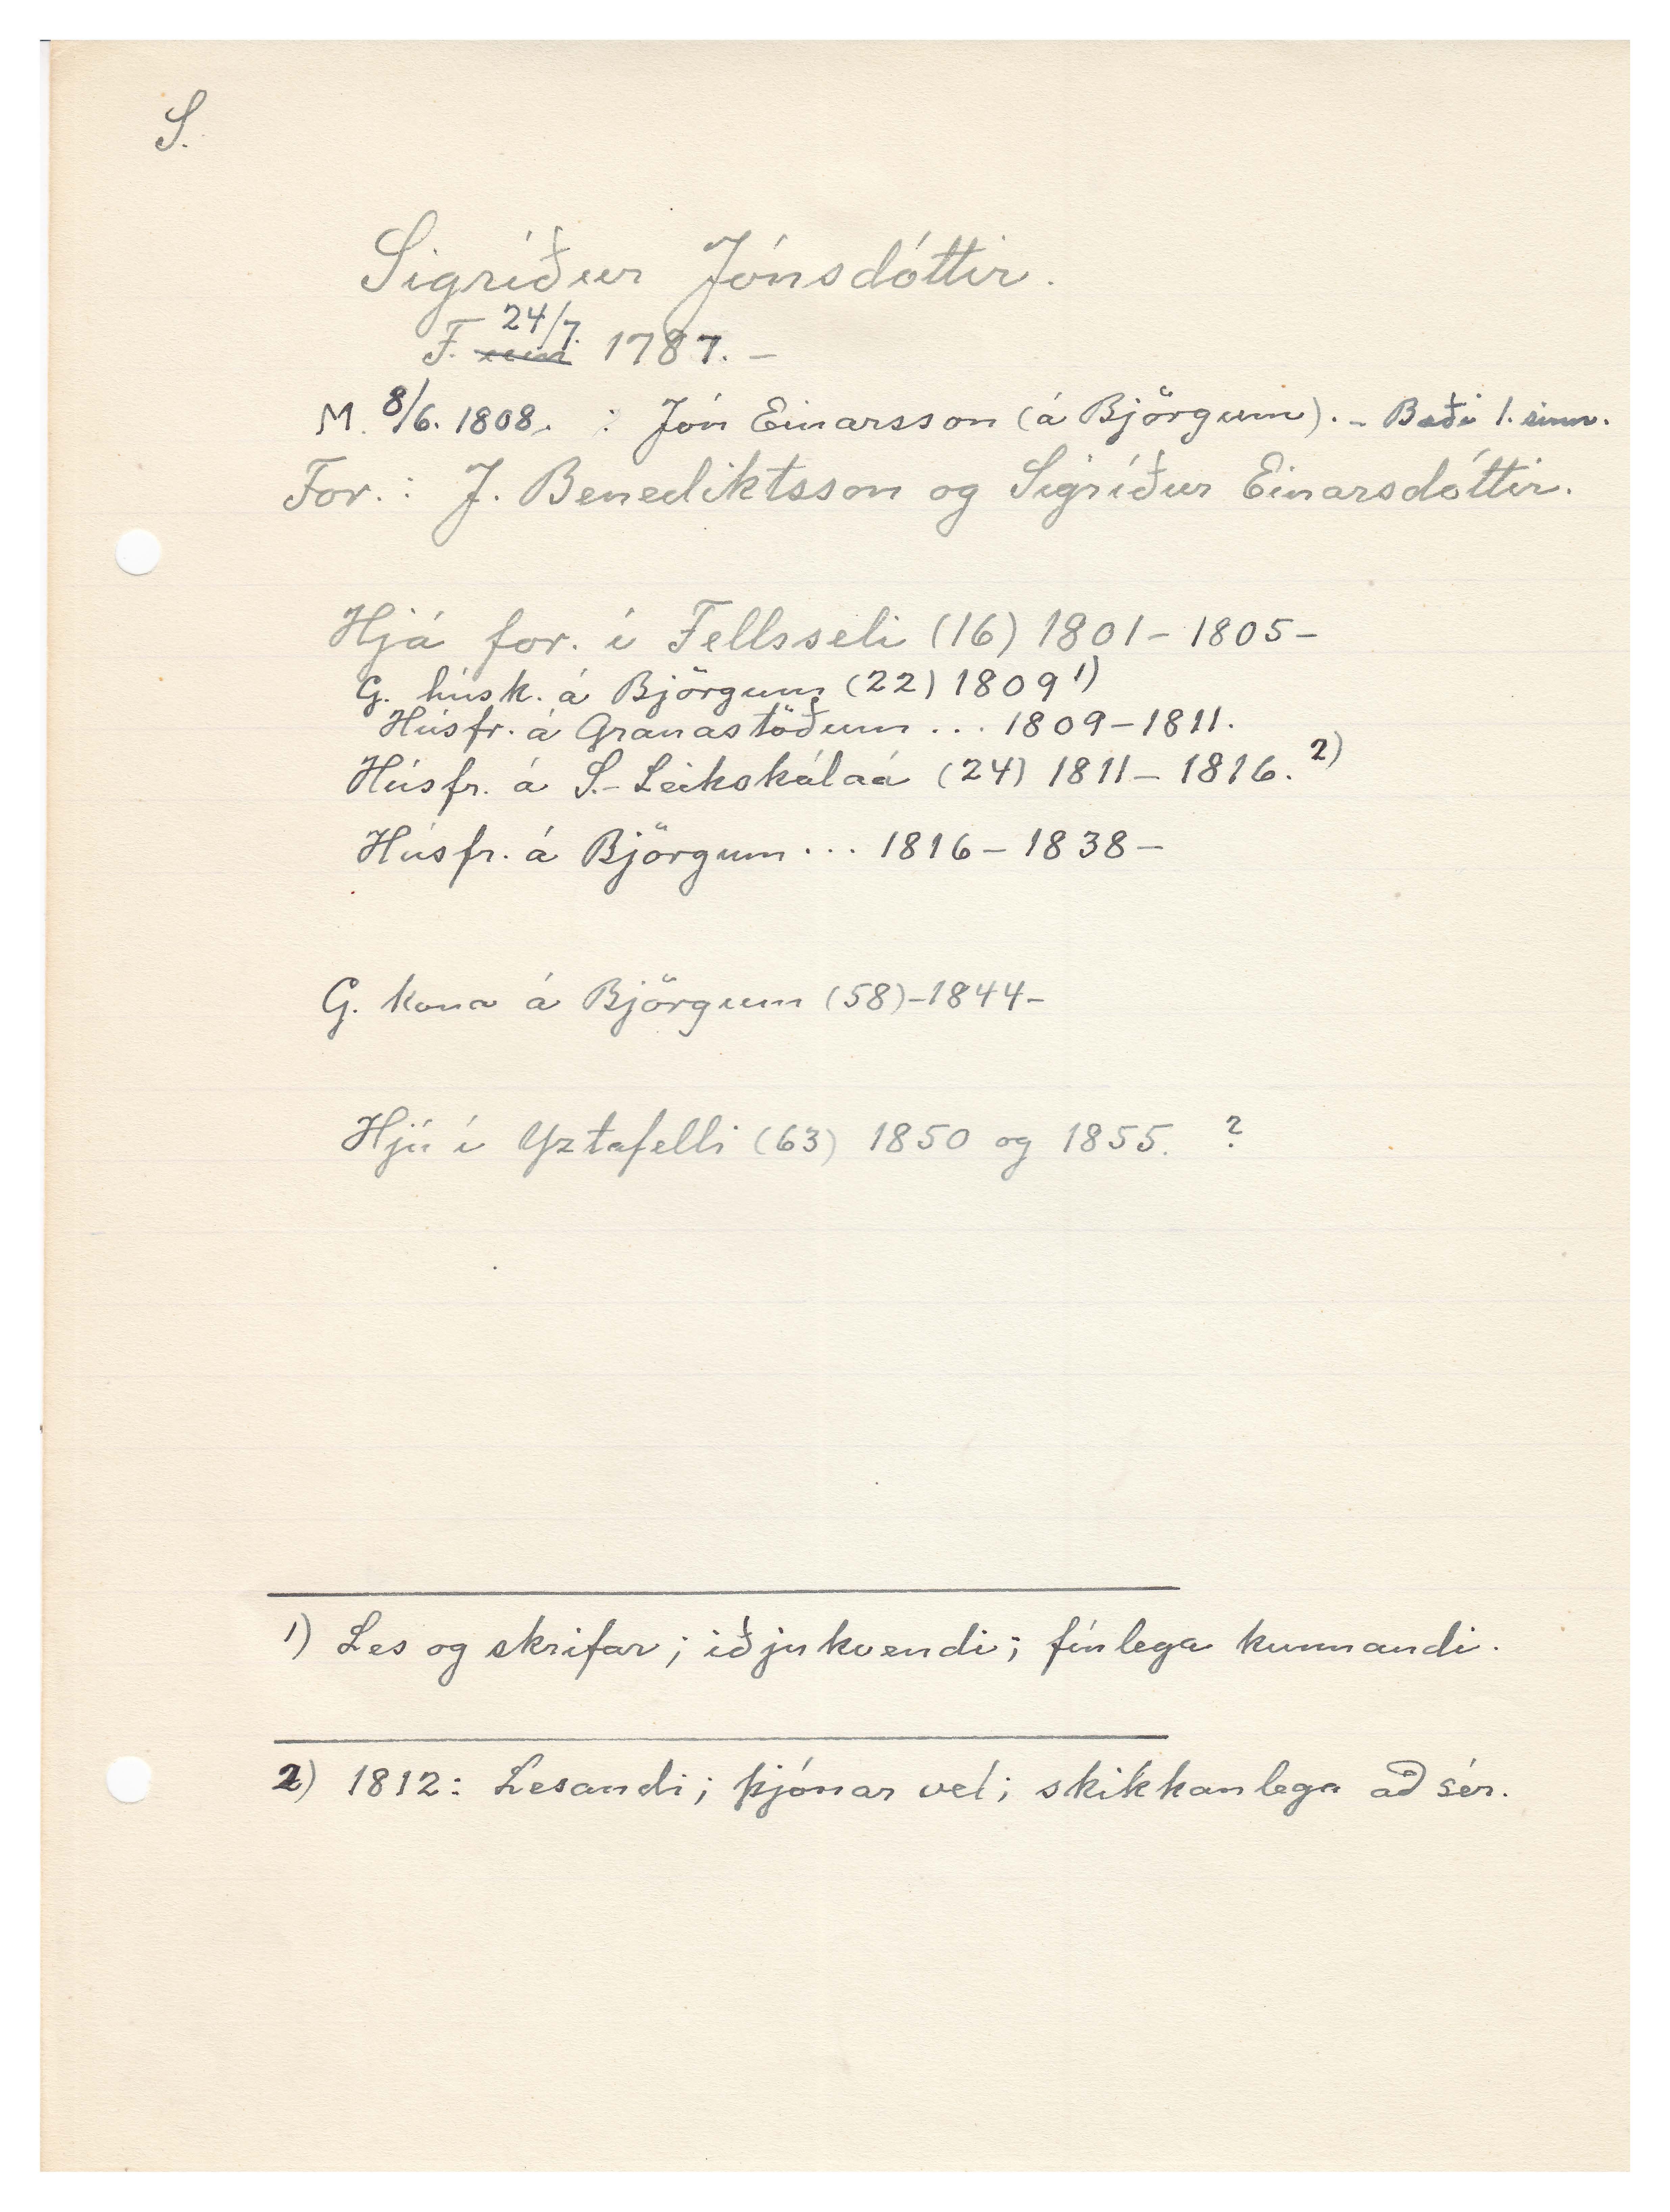 S.
Sigríður Jónsdóttir.
F. um 24/7. 1787. –
M. 8/6. 1808. : Jón Einarsson (á Björgum). – Bæði 1. sinn.
For. : J. Benediktsson og Sigríður Einarsdóttir.
Hjá for. í Fellsseli (16) 1801 – 1805 –
G. húsk. á Björgum (22) 1809 1)
Húsfr. á Granastöðum ... 1809 – 1811.
Húsfr. á S.- Leikskálaá (24) 1811 – 1816. 2)
Húsfr. á Björgum ... 1816 – 1838 –
G. kona á Björgum (58) – 1844 –
Hjú í Yztafelli (63) 1850 og 1855. ?
1) Les og skrifar ; iðjukvendi ; fínlega kunnandi.
2) 1812 : Lesandi ; þjónar vel ; skikkanlega að sér.